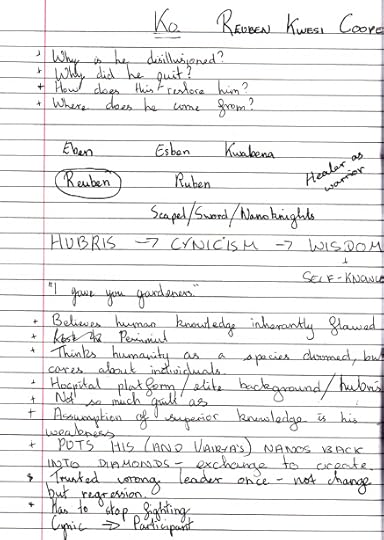 Ko. REUBEN KWESI COOPE
Why is he disillusioned?
Why did he quit?
+ How does this restore him?
+ Where does he come from?
Eben Esben Kwabena
Reuben Ruben Healer as warrior
Scapel/Sword/Nanoknights
HUBRIS → CYNICISM → WISDOM
↓
SELF-KNOWL
"I gave you gardeners."
+ Believes human knowledge inherantly flawed
+
+ Thinks humanity as a species doomed, but
cares about individuals.
+ Hospital platform / elite background / hubris
+ Not so much guilt as
+ Assumption of superior knowledge is his
weakness
+ PUTS HIS (AND VAIRYA'S) NANOS BACK
INTO DIAMONDS – exchange to create.
Trusted wrong leader once – not change
but regression.
+ Has to stop fighting
Cynic ⇒ Participant